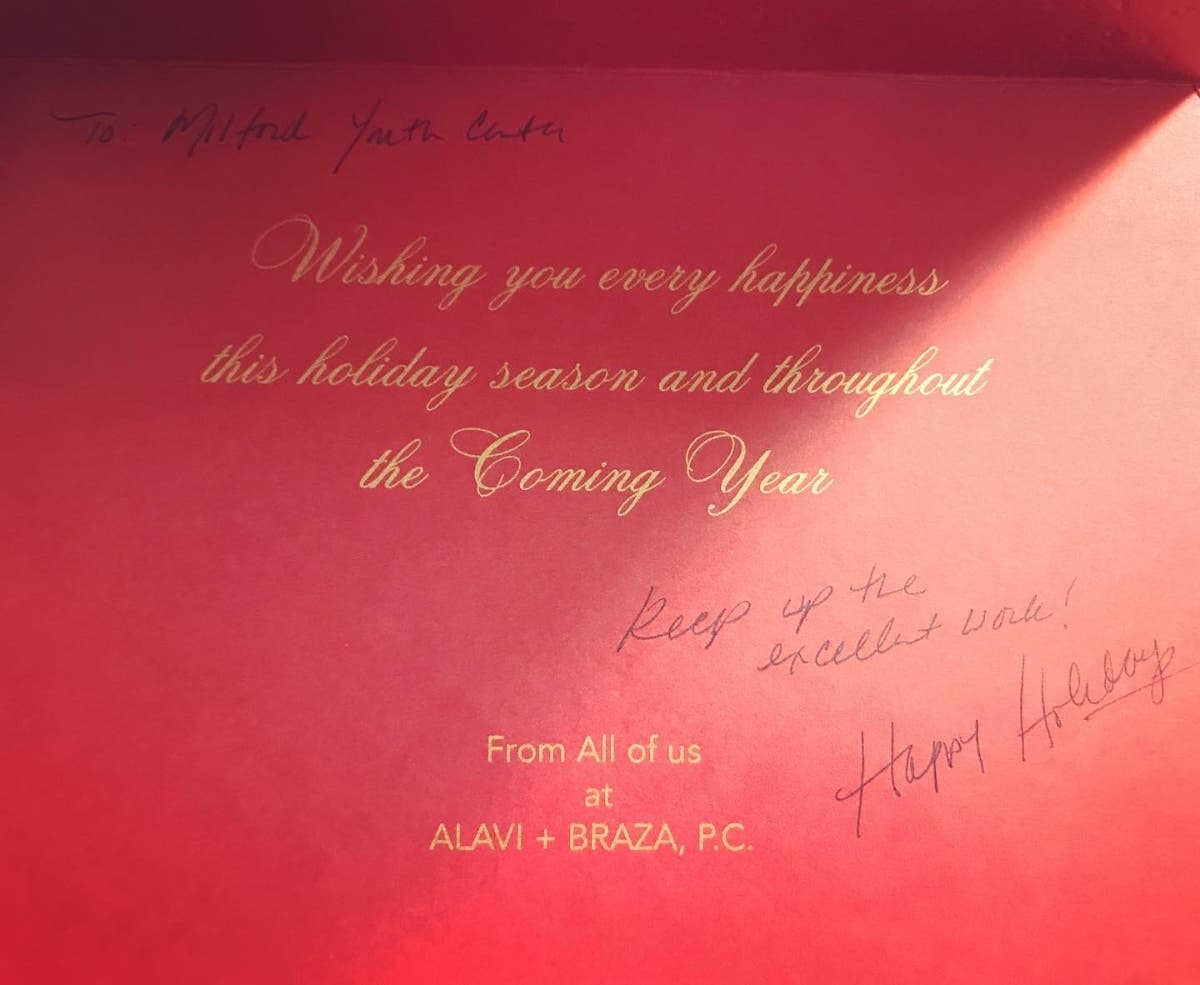 To: Milford Youth Center
Wishing you every happiness
this holiday season and throughout
the Coming Year
Keep up the
excellent work!
Happy Holidays
From All of us
at
ALAVI + BRAZA, P.C.